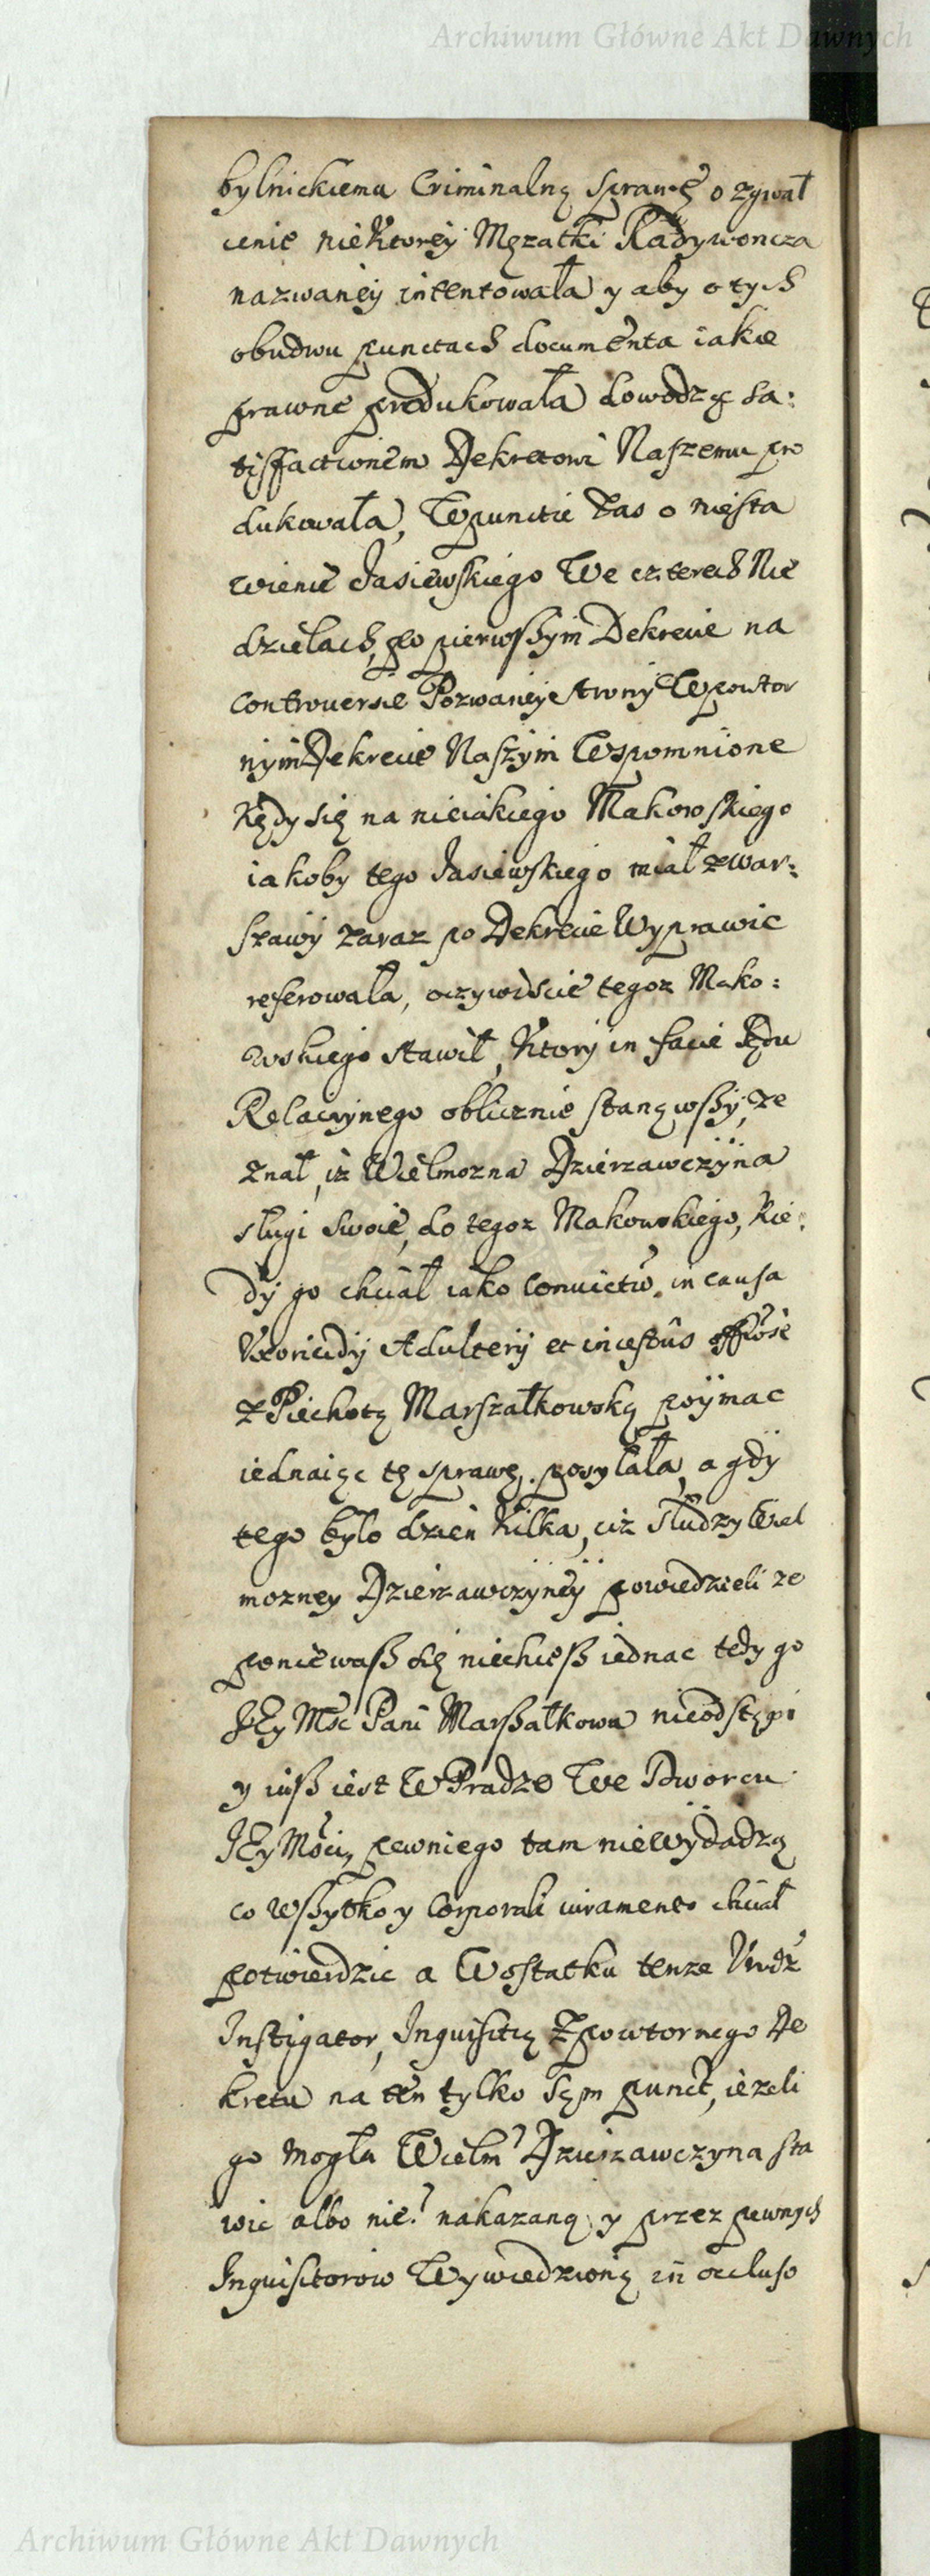 Archiwum Główne Akt Dawnych
bylnickiemu Criminalną sprawę o zgwał
cenie niektorey Męzatki Radywoncza
nazwaney intentowała y aby o tych
obudwu punctach documenta iakie
prawne produkowała dowodząc sa:
tisfactionem Dekretowi Naszemu pro
dukowała, W puncie zas o niesta
wienie Jasiewskiego We czterech Nie
dzielach, po pierwszym Dekrecie na
controversie Pozwaneye strony W powtor
nym Dekrecie Naszym Wspomnione
Kędy się na nieiakiego Makowskiego
iakoby tego Jasiewskiego miał z War:
szawy zaraz po Dekrecie Wyprawic
referowała, oczywiscie tegoz Mako:
wskiego stawił, Ktory in facie Sądu
Relacyinego oblicznie stanąwszy, ze
znał, iz Wielmozna Dzierzawczyna
sługi swoie, do tegoz Makowskiego, Kie:
dy go chciał iako convictu, in causa
Uxoricidij Adulterij et incestus
z Piechotą Marszałkowską poymac
iednaiąc tę sprawę. posylała, a gdy
tego było dzien Kilka, ciz słudzy Wiel
mozney Dzierzawczyney powiedzieli ze
poniewasz się niechcesz iednac tedy go
JEy Msc Pani Marszałkowa nieodstąpi
y iusz iest W Pradze We Dworcu
JEy Msci, pewniego tam niewydadzą
co wszytko y corporali iuramento chciał
potwierdzic a Wostatku tenze Urodz
Instigator, Inquisitią z powtornego De
kretu na ten tylko sąm punct, iezeli
go mogła Wielm Dzierzawczyna sta
wic albo nie? nakazaną y przez pewnych
Inquisitorow Wywiedzioną in occluso
Archiwum Główne Akt Dawnych